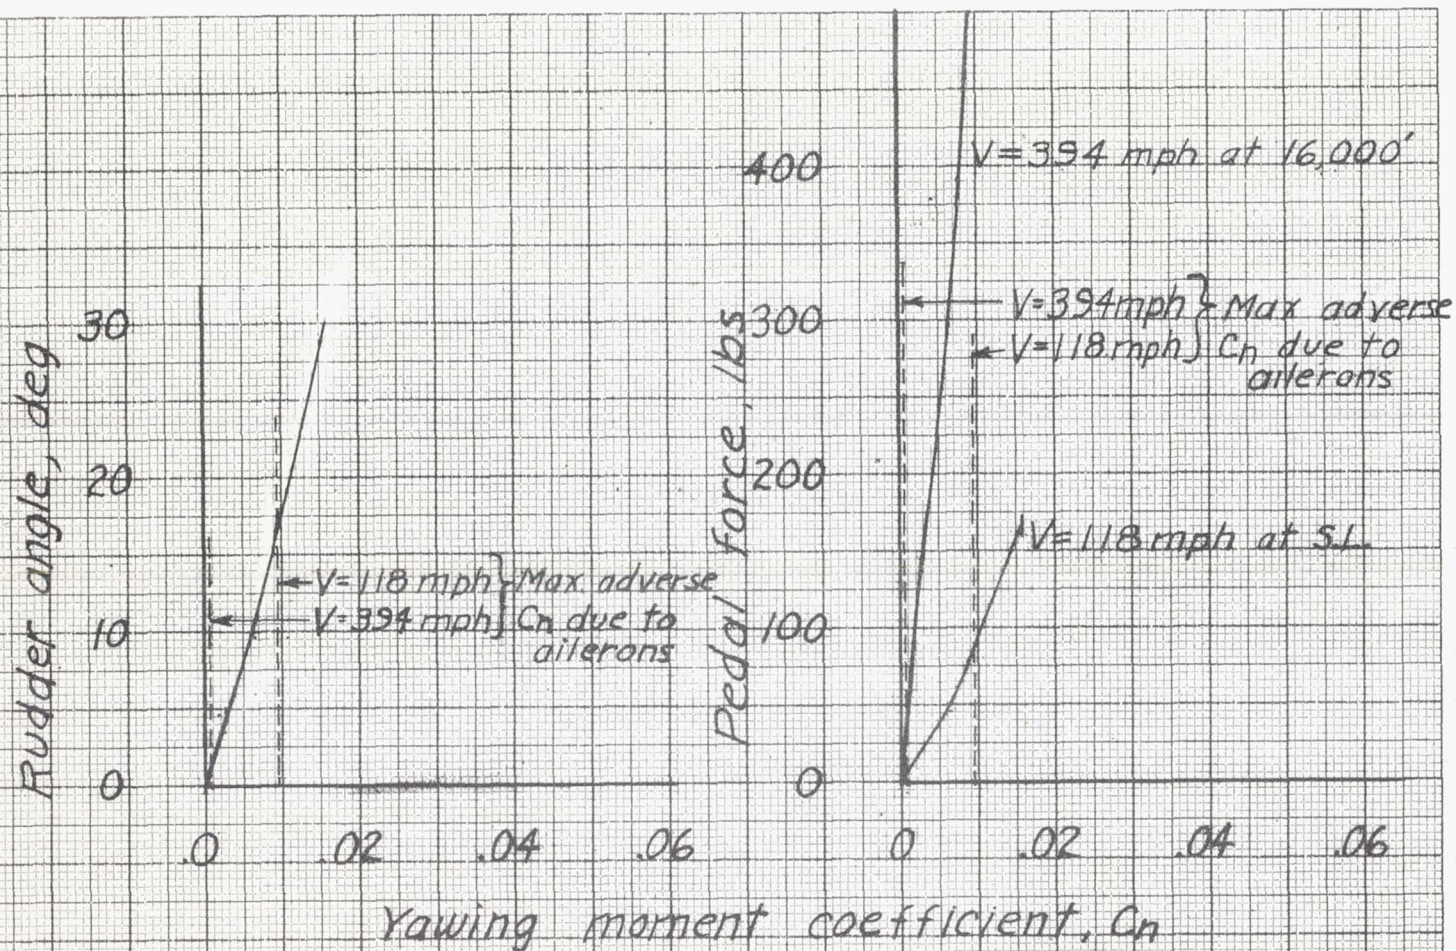 Rudder angle, deg
30
20
10
0
V=118 mph } Max. adverse
V=394 mph } Cn due to
ailerons
.0 .02 .04 .06
Pedal force, lbs
400
300
200
100
0
V=394 mph at 16,000'
V=394 mph } Max adverse
V=118 mph } Cn due to
ailerons
V=118 mph at S.L.
0 .02 .04 .06
Yawing moment coefficient, Cn